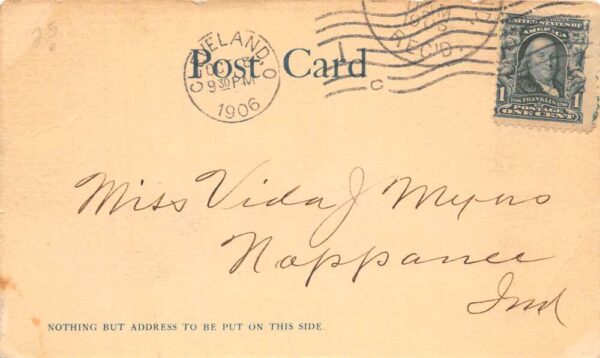 25
Post Card
CLEVELAND, O
9 30 PM
1906
REC'D.
C
UNITED STATES OF
AMERICA
1 1
FRANKLIN
POSTAGE
ONE CENT
Miss Vida J Myers
Nappanee
Ind
NOTHING BUT ADDRESS TO BE PUT ON THIS SIDE.